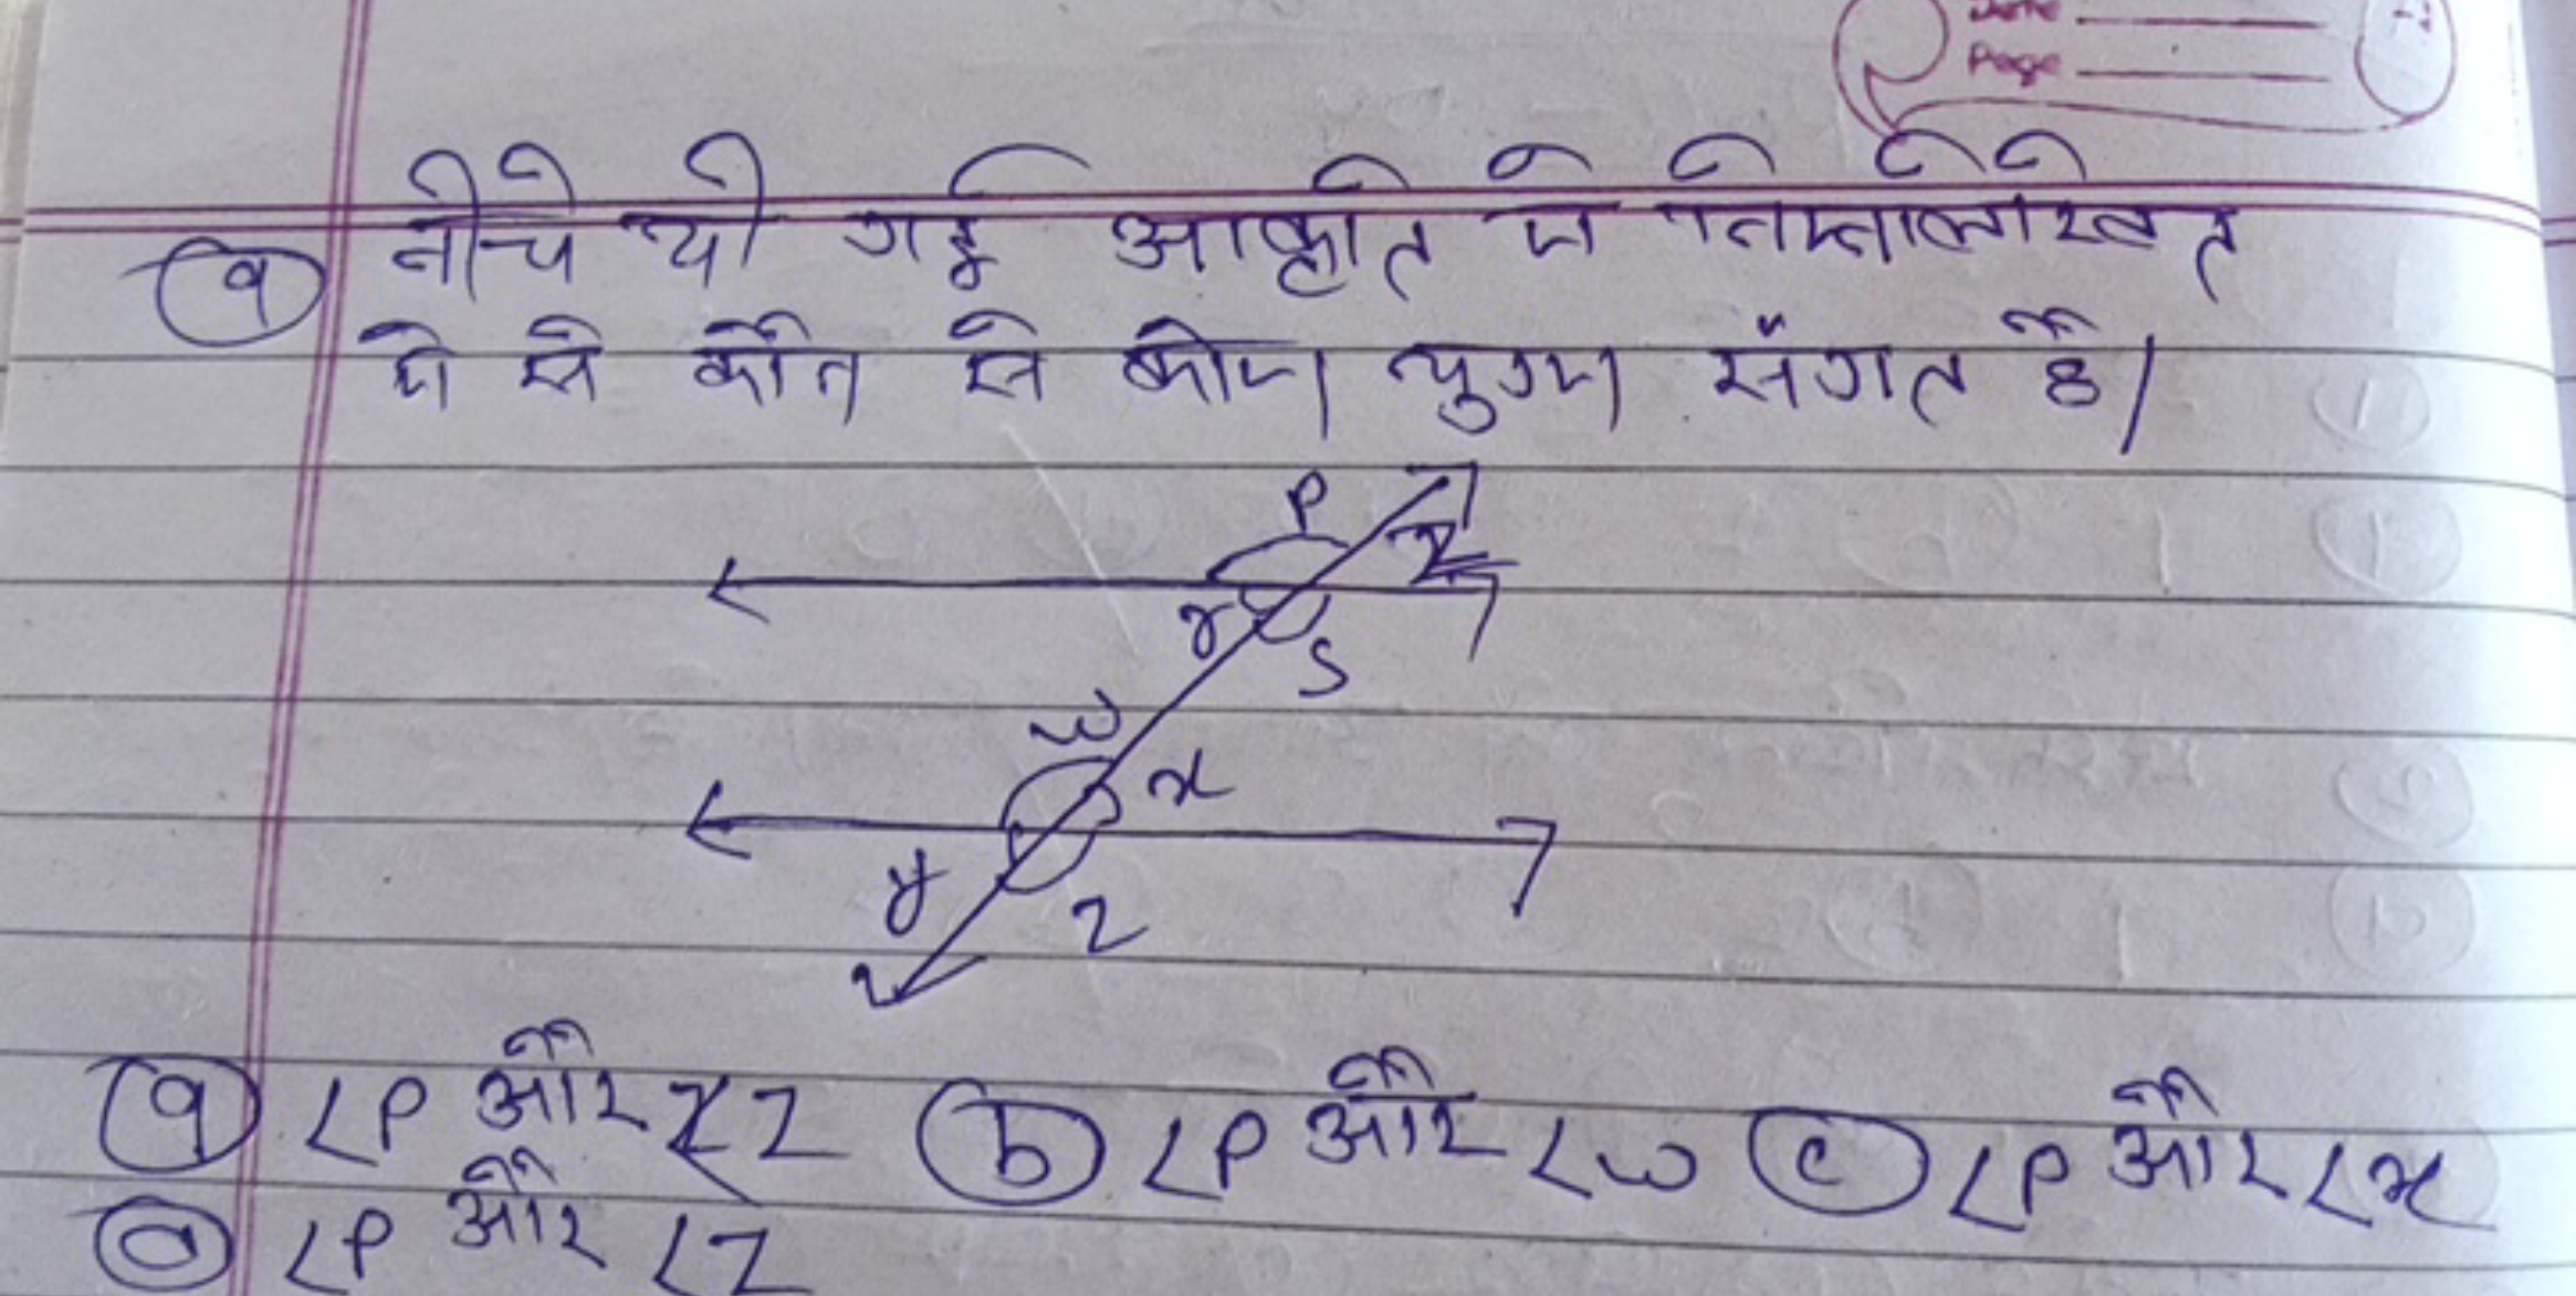 Date
Page
(9) नीचे दी गई आकृति में निम्नलिखित
में से कौन से कोण युग्म संगत है।
P
r
S
w
x
y
z
(a) ∠P और ∠Z (b) ∠P और ∠w (c) ∠P और ∠x
(d) ∠P और ∠Z